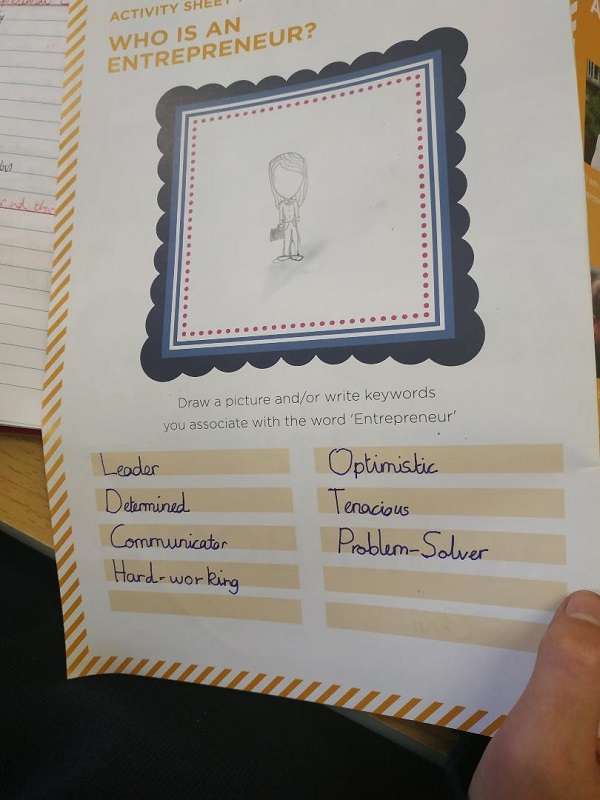 ACTIVITY SHEET
WHO IS AN
ENTREPRENEUR?
Draw a picture and/or write keywords
you associate with the word 'Entrepreneur'
Leader
Determined
Communicator
Hard-working
Optimistic
Tenacious
Problem-Solver